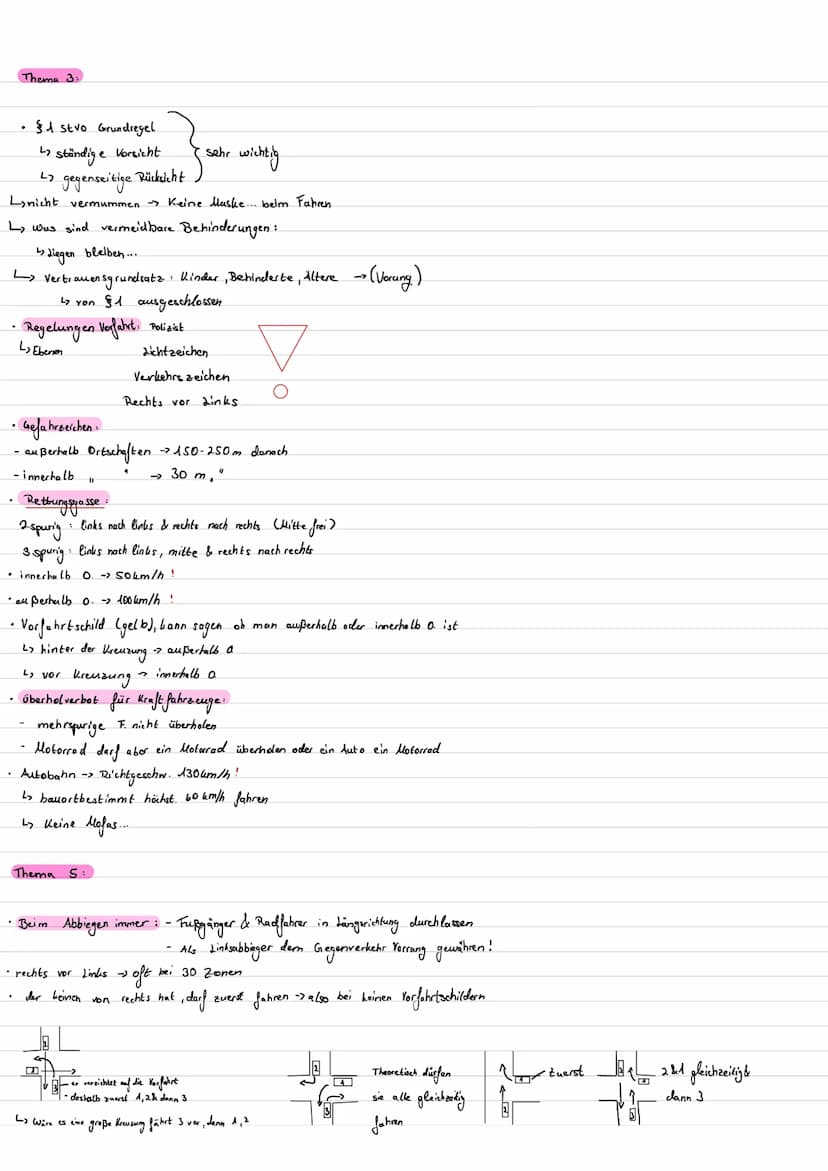 Thema 3:
• §1 StVO Grundregel
↳ ständige Vorsicht } sehr wichtig
↳ gegenseitige Rücksicht
↳ nicht vermummen → Keine Maske... beim Fahren
↳ Was sind vermeidbare Behinderungen:
↳ Liegen bleiben...
↳ Vertrauensgrundsatz: Kinder, Behinderte, Ältere → (Vorrang)
↳ von §1 ausgeschlossen
• Regelungen Vorfahrt: Polizist
↳ Ebenen Lichtzeichen
Verkehrszeichen
Rechts vor Links
• Gefahrzeichen:
- außerhalb Ortschaften → 150-250m danach
- innerhalb " " → 30 m, "
• Rettungsgasse:
2 spurig: links nach links & rechts nach rechts (Mitte frei)
3 spurig: links nach links, mitte & rechts nach rechts
• innerhalb O. → 50km/h !
• außerhalb O. → 100km/h !
• Vorfahrtschild (gelb), kann sagen ob man außerhalb oder innerhalb O. ist
↳ hinter der Kreuzung → außerhalb O
↳ vor Kreuzung → innerhalb O
• Überholverbot für Kraftfahrzeuge:
- mehrspurige F. nicht überholen
- Motorrad darf aber ein Motorrad überholen oder ein Auto ein Motorrad
• Autobahn → Richtgeschw. 130km/h !
↳ bauortbestimmt höchst. 60 km/h fahren
↳ Keine Mofas...
Thema 5:
• Beim Abbiegen immer: - Fußgänger & Radfahrer in Längsrichtung durchlassen
- Als Linksabbieger dem Gegenverkehr Vorrang gewähren!
• rechts vor Links → oft bei 30 Zonen
• der keinen von rechts hat, darf zuerst fahren → also bei keinen Vorfahrtschildern
1
2
3
- er verzichtet auf die Vorfahrt
- deshalb zuerst 1, 2 & dann 3
↳ Wäre es eine große Kreuzung fährt 3 vor, dann 1, 2
2
1
3
Theoretisch dürfen
sie alle gleichzeitig
fahren
1
zuerst
2
2
1
3
2 & 1 gleichzeitig &
dann 3